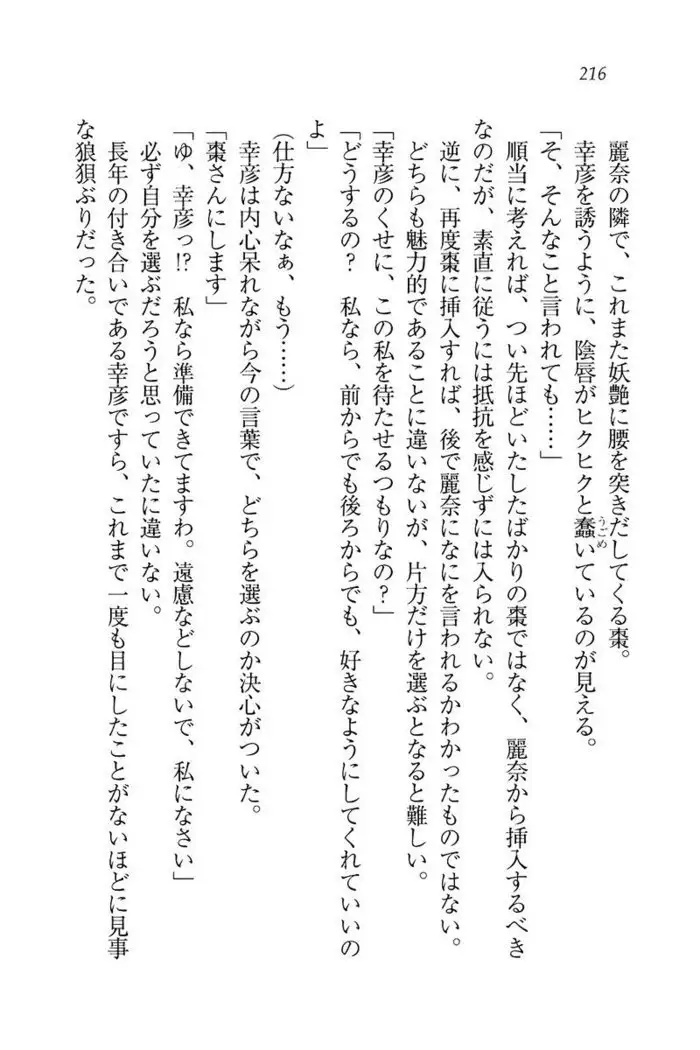 216
麗奈の隣で、これまた妖艶に腰を突きだしてくる棗。
幸彦を誘うように、陰唇がヒクヒクと蠢いているのが見える。
うごめ
「そ、そんなこと言われても……」
順当に考えれば、つい先ほどいたしたばかりの棗ではなく、麗奈から挿入するべき
なのだが、素直に従うには抵抗を感じずには入られない。
逆に、再度棗に挿入すれば、後で麗奈になにを言われるかわかったものではない。
どちらも魅力的であることに違いないが、片方だけを選ぶとなると難しい。
「幸彦のくせに、この私を待たせるつもりなの？」
「どうするの？　私なら、前からでも後ろからでも、好きなようにしてくれていいの
よ」
（仕方ないなぁ、もう……）
幸彦は内心呆れながら今の言葉で、どちらを選ぶのか決心がついた。
「棗さんにします」
「ゆ、幸彦っ!?　私なら準備できてますわ。遠慮などしないで、私になさい」
必ず自分を選ぶだろうと思っていたに違いない。
長年の付き合いである幸彦ですら、これまで一度も目にしたことがないほどに見事
な狼狽ぶりだった。